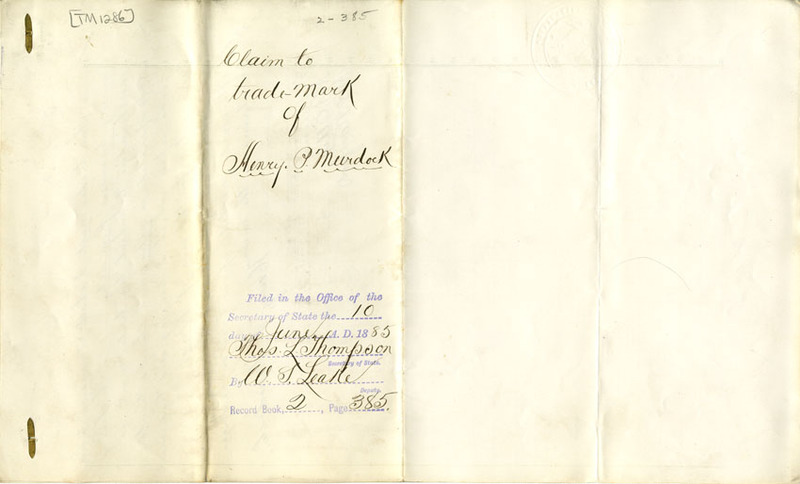 [TM1286]
2-385
Claim to
trade-mark
of
Henry. P. Murdock
Filed in the Office of the
Secretary of State the 10
day of June A. D. 1885
Thos L Thompson
Secretary of State.
By W. S. Leake
Deputy.
Record Book, 2, Page 385.